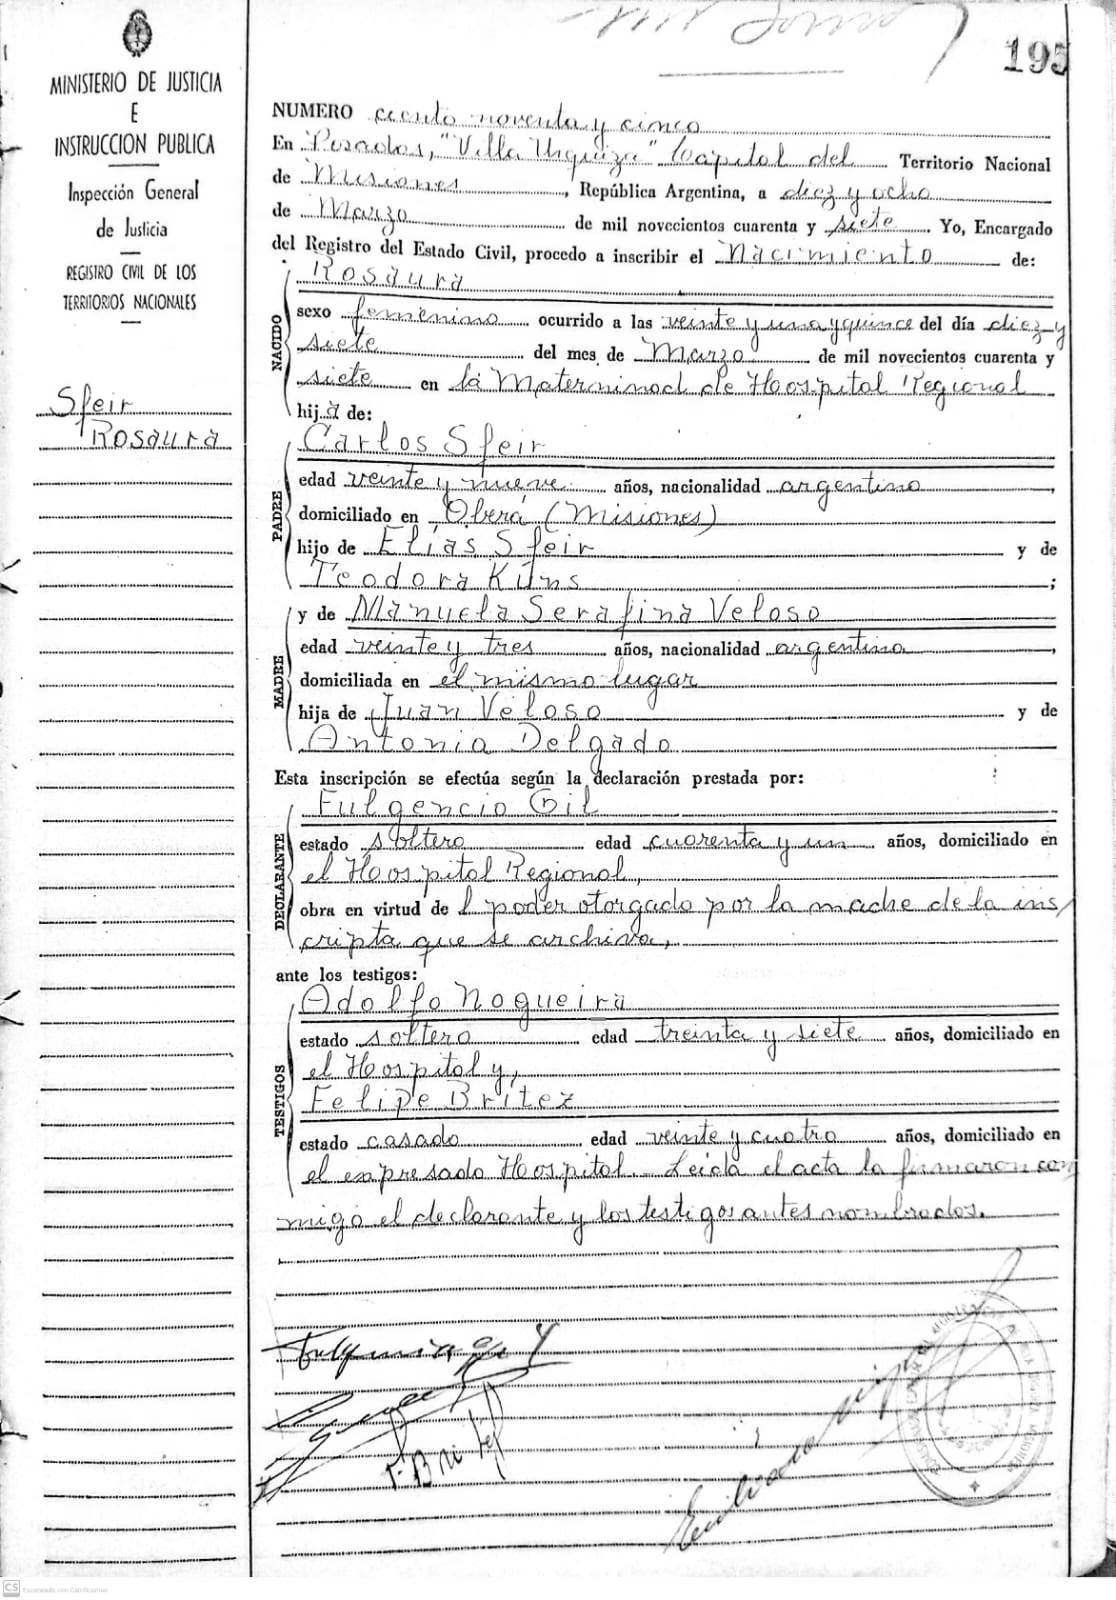 195
MINISTERIO DE JUSTICIA
E
INSTRUCCION PUBLICA
Inspección General
de Justicia
REGISTRO CIVIL DE LOS
TERRITORIOS NACIONALES
Sfeir
Rosaura
NUMERO ciento noventa y cinco
En Posadas, "Villa Urquiza" Capital del Territorio Nacional
de Misiones, República Argentina, a diez y ocho
de Marzo de mil novecientos cuarenta y siete. Yo, Encargado
del Registro del Estado Civil, procedo a inscribir el Nacimiento de:
NACIDO
Rosaura
sexo femenino ocurrido a las veinte y una y quince del día diez y
siete del mes de Marzo de mil novecientos cuarenta y
siete en la Materninad de Hospital Regional
hija de:
PADRE
Carlos Sfeir
edad veinte y nueve años, nacionalidad argentino,
domiciliado en Oberá (Misiones)
hijo de Elías Sfeir y de
Teodora Kúns;
MADRE
y de Manuela Serafina Veloso
edad veinte y tres años, nacionalidad argentina,
domiciliada en el mismo lugar
hija de Juan Veloso y de
Antonia Delgado
Esta inscripción se efectúa según la declaración prestada por:
DECLARANTE
Fulgencio Gil
estado soltero edad cuarenta y un años, domiciliado en
el Hospital Regional,
obra en virtud de l poder otorgado por la madre de la ins
cripta que se archiva,
ante los testigos:
TESTIGOS
Adolfo Nogueira
estado soltero edad treinta y siete años, domiciliado en
el Hospital y,
Felipe Britez
estado casado edad veinte y cuatro años, domiciliado en
el expresado Hospital. Leida el acta la firmaron con
migo el declarante y los testigos antes nombrados.
F. Britez
CS Escaneado con CamScanner